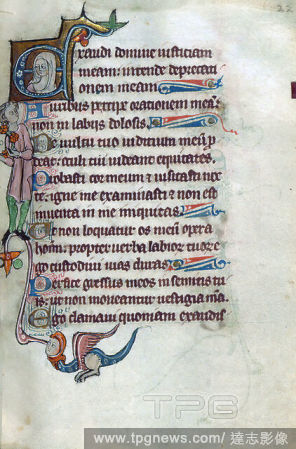 22
Exaudi domine iusticiam
meam: intende deprecati
onem meam.
Auribus percipe orationem mea:
non in labijs dolosis.
De uultu tuo iudicium meu p
deat: oculi tui uideant equitates.
Probasti cor meum & uisitasti noc
te: igne me examinasti & non est
inuenta in me iniquitas.
Ut non loquatur os meu opera
hominu: propter uerba labior tuor e
go custodiui uias duras.
Perfice gressus meos in semitis tu
is: ut non moueantur uestigia mea.
Ego clamaui quoniam exaudis
TPG
www.tpgnews.com / 達志影像